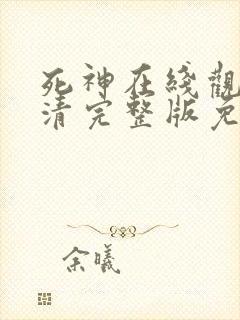 死神在綫觀
清完整版免
余曦